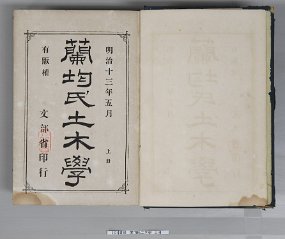 明治十三年五月
上冊
蘭均氏土木學
有版権
文部省印行